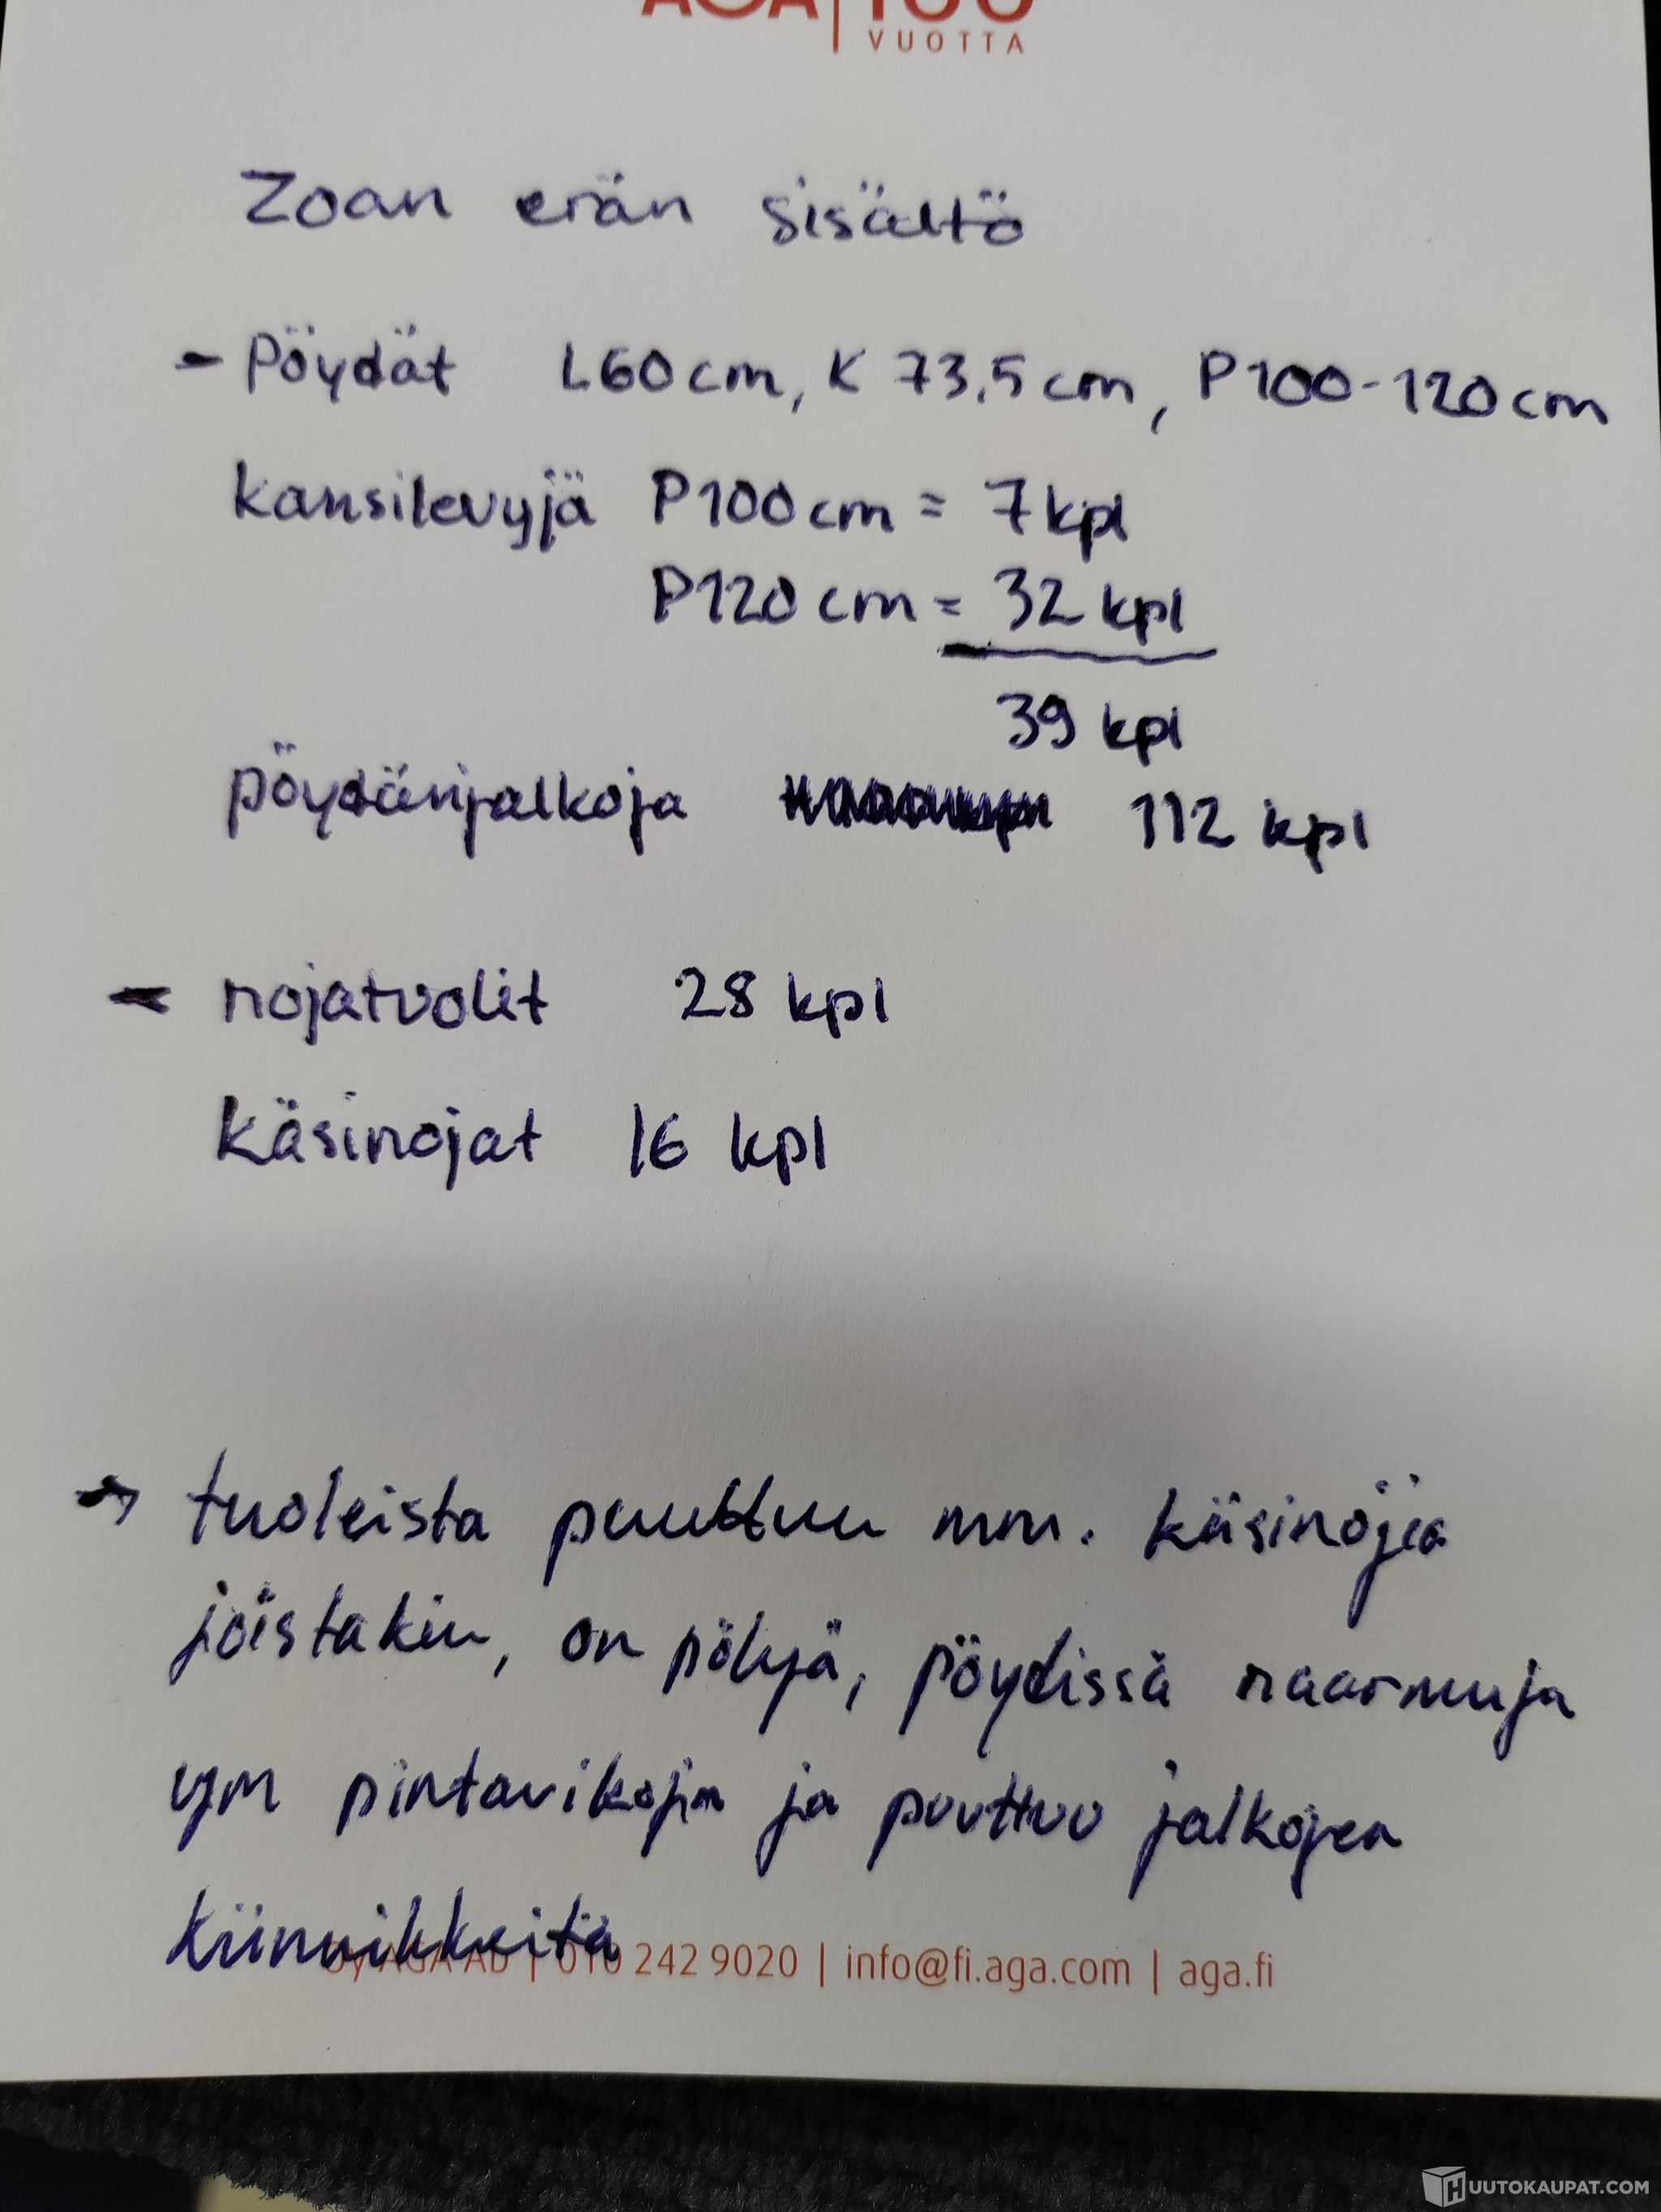 AGA | 100
VUOTTA
Zoan erän sisältö
- Pöydät L60cm, K 73,5cm, P100-120cm
kansilevyjä P100cm = 7kpl
P120cm = 32 kpl
39 kpl
pöydänjalkoja 112 kpl
- nojatuolit 28 kpl
Käsinojat 16 kpl
→ tuoleista puuttuu mm. käsinojia
joistakin, on pölyjä, pöydissä naarmuja
ym pintavikoja ja puuttuu jalkojen
kiinnikkeitä
Oy AGA AB | 010 242 9020 | info@fi.aga.com | aga.fi
HUUTOKAUPAT.COM